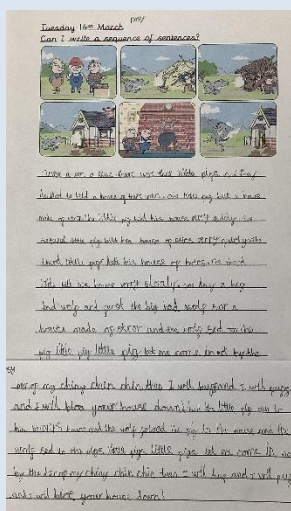 Tuesday 16th March
Can I write a sequence of sentences?
a time there was three little pigs and they
to bild a house of their own. one little pig bilt a house
made of little pig bild his house very quickly the
second little pig bilt his house of sticks very quickly the
therd little pigs bilt his house of bricks. the therd
little pig bilt his house very slowly. one day a big
bad wolf and the big bad wolf sor a
house made of stror and the wolf sed to the
pig little pig little pig let me come in not by the
of my chiny chin chin then I will huf and I will puf
and I will blow your house down! the little pig ran to
his house and the wolf the pig to the house and the
wolf sed to the pigs little pigs little pigs let me come in no
by the of my chiny chin chin then I will huf and I will puf
and I will blow your house down!